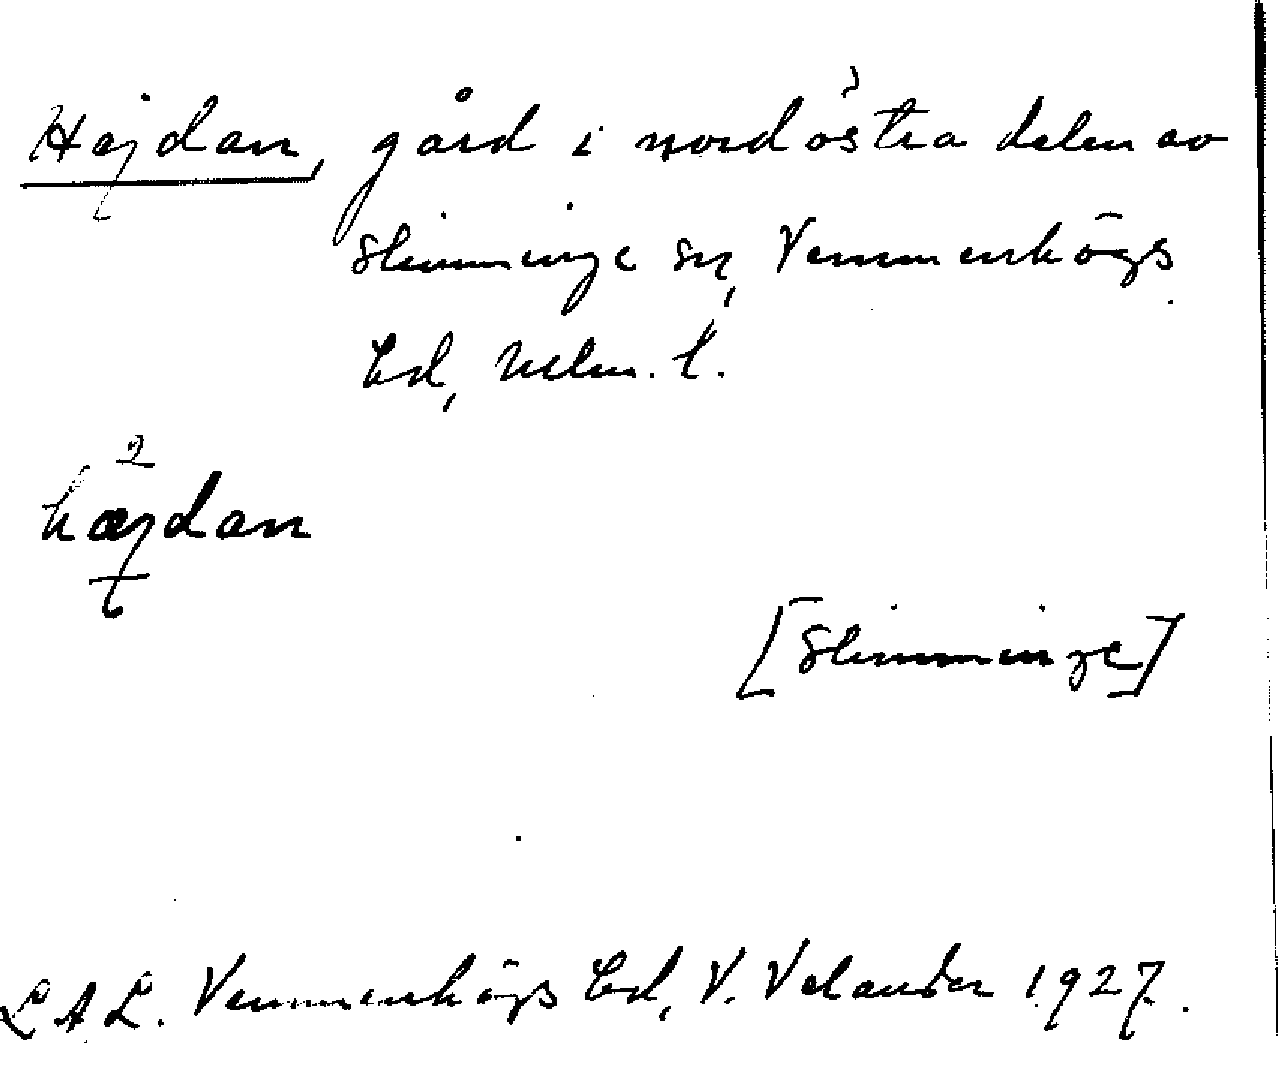 Hajdan, gård i nordöstra delen av
Slimminge sn, Vemmenhögs
hd, Mlm. l.
hajdan
[Slimminge]
L A L. Vemmenhögs hd, V. Velander 1927.